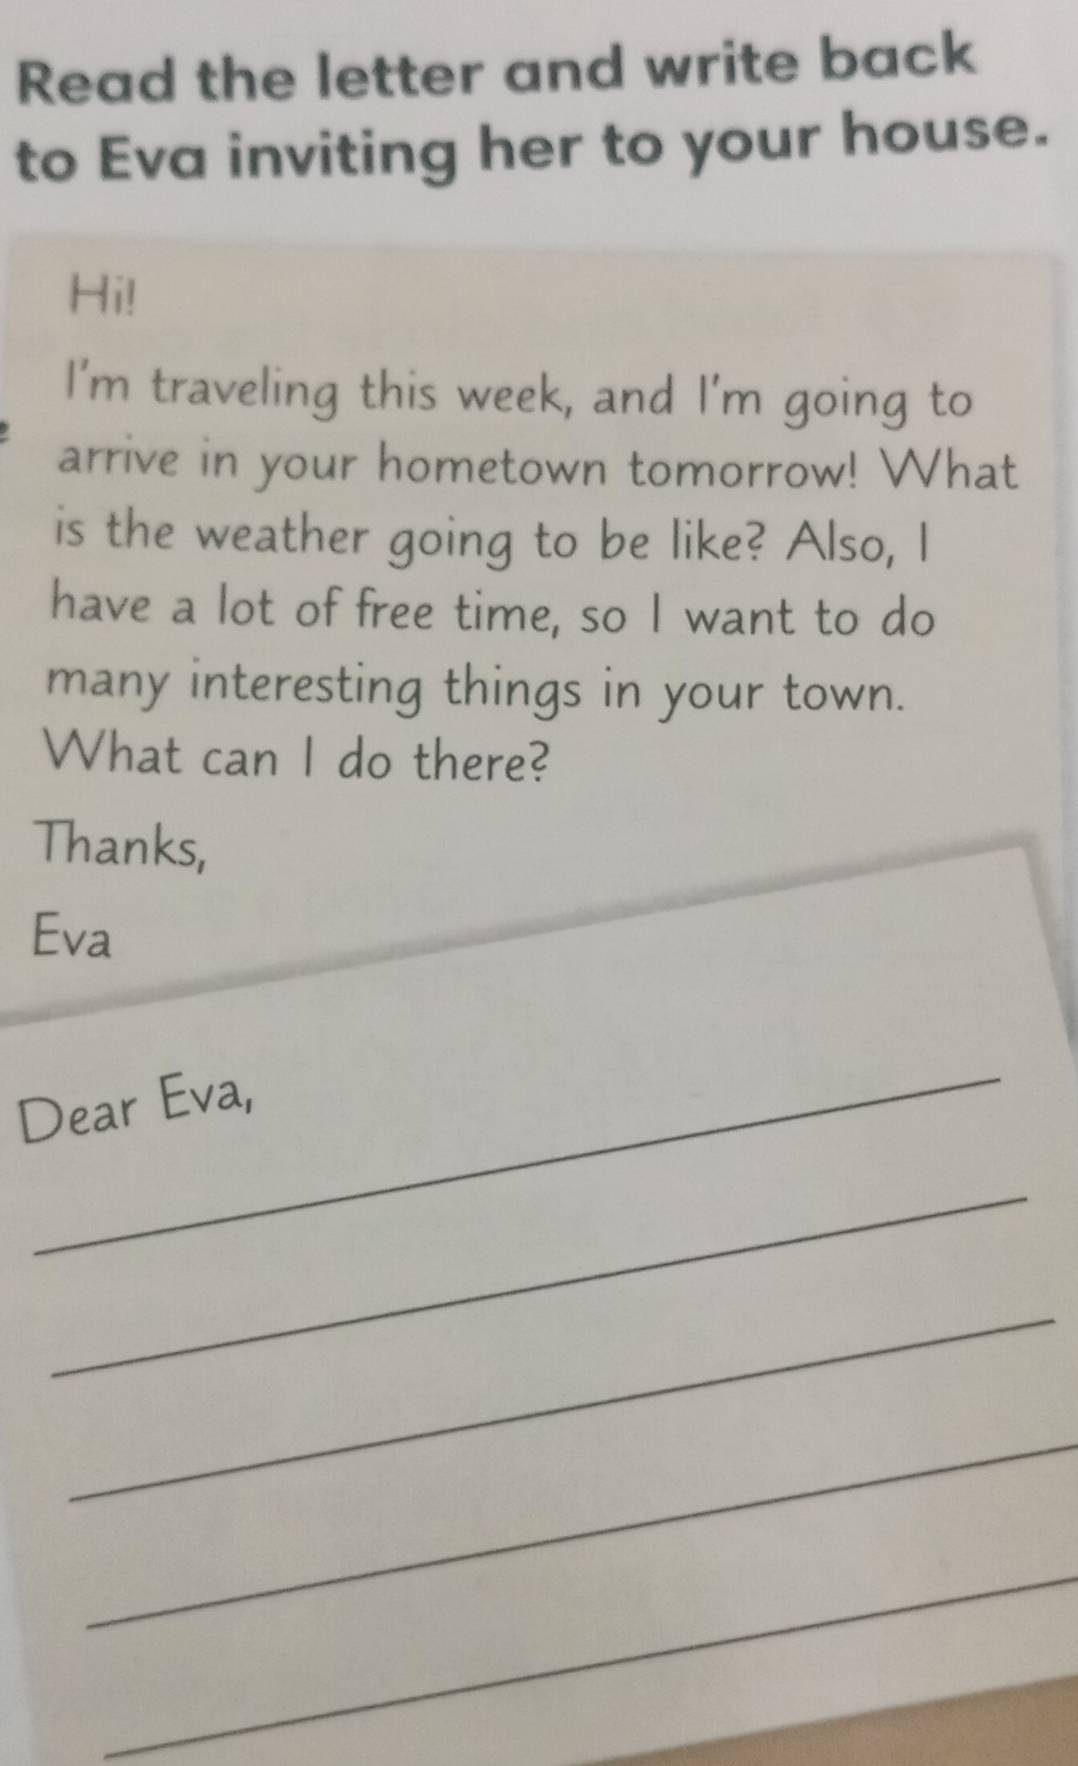 Read the letter and write back
to Eva inviting her to your house.
Hi!
I'm traveling this week, and I'm going to
arrive in your hometown tomorrow! What
is the weather going to be like? Also, I
have a lot of free time, so I want to do
many interesting things in your town.
What can I do there?
Thanks,
Eva
Dear Eva,